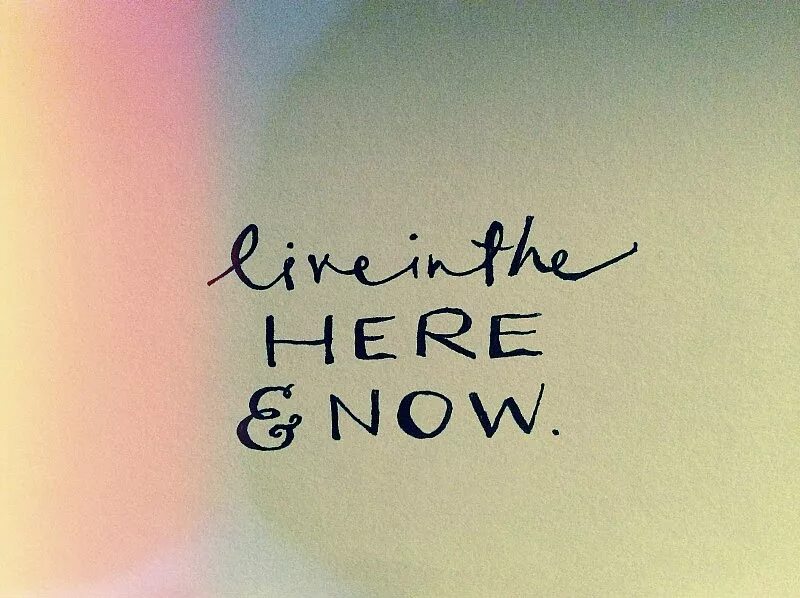 live in the
HERE
& NOW.